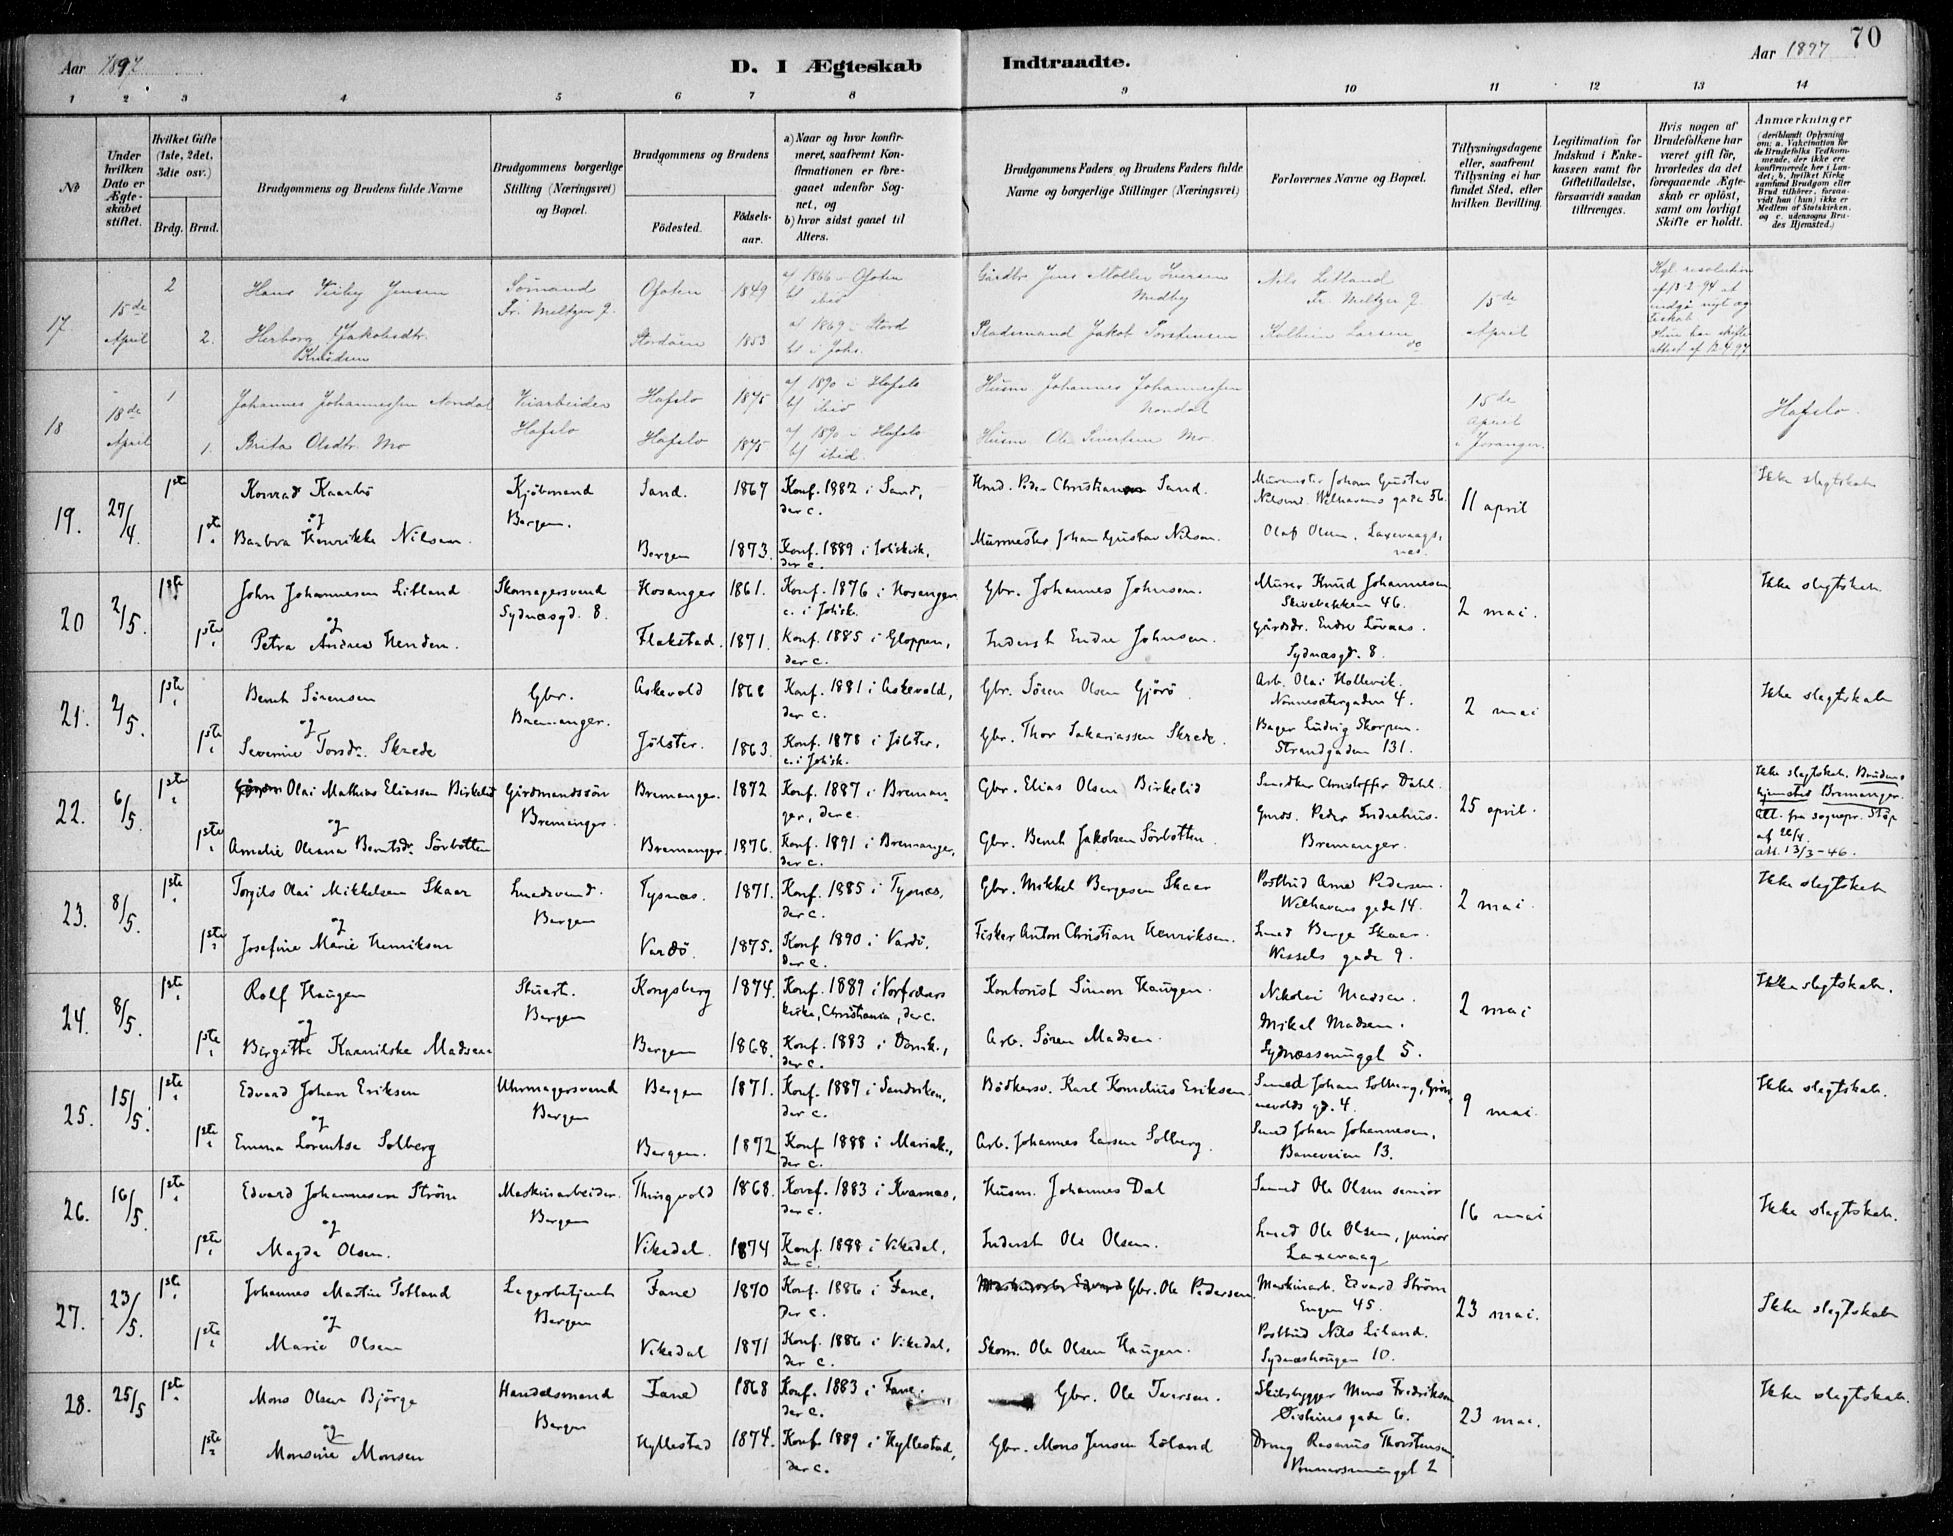 70
Aar 1897
D. I Ægteskab Indtraadte.
Aar 1897
1 2 3 4 5 6 7 8 9 10 11 12 13 14
No
Under hvilken Dato er Ægteskabet stiftet.
Hvilket Gifte (1ste, 2det, 3die osv.)
Brdg. Brud.
Brudgommens og Brudens fulde Navne
Brudgommens borgerlige Stilling (Næringsvei) og Bopæl.
Brudgommens og Brudens
Fødested.
Fødselsaar.
a) Naar og hvor konfirmeret, saafremt Konfirmationen er foregaaet udenfor Sognet, og
b) hvor sidst gaaet til Alters.
Brudgommens Faders og Brudens Faders fulde Navne og borgerlige Stillinger (Næringsvei)
Forlovernes Navne og Bopæl.
Tillysningsdagene eller, saafremt Tillysning ei har fundet Sted, efter hvilken Bevilling.
Legitimation for Indskud i Enkekassen samt for Giftetilladelse, forsaavidt saadan tiltrænges.
Hvis nogen af Brudefolkene har været gift før, hvorledes da det foregaaende Ægteskab er opløst, samt om lovligt Skifte er holdt.
Anmærkninger
(deriblandt Oplysning om: a. Vakcination for de Brudefolks Vedkommende, der ikke ere konfirmerede her i Landet, b. hvilket Kirkesamfund Brudgom eller Brud tilhører, forsaavidt han (hun) ikke er Medlem af Statskirken, og c. udensogns Brudes Hjemsted.)
17 15de April 2 Hans Jensen Sømand Ofoten 1849 a/ 1866 i Ofoten b/ ibid Gårdbr Jens Møller Iversen Nils Litland 15de April
Kgl. resolution af 13.2.94 at indgå nyt ægteskab
2. Herborg Jakobsdtr. Knudsen Stordøen 1853 a/ 1869 i Stord b/ i Johs. Jakob Torstensen Larsen do
18 18de April 1 Johannes Johannessen Nondal Veiarbeider Hafslo Hafslo 1875 a/ 1890 i Hafslo b/ ibid Husm. Johannes Johannessen Nondal 15de April i Joranger. Hafslo.
1. Brita Olsdtr. Mo Hafslo 1875 a/ 1890 i Hafslo b/ ibid. Husm Ole Sivertsen Mo.
19. 27/4 1ste Konrad Kaarbø Kjøbmand Bergen. Sand. 1867 Konf. 1882 i Sand, der c. Hmd. Peder Christian Sand. Murmester Johan Gustav Nilsen. Welhavens gade 56. 11 april Ikke slegtskab
og
1ste Barbra Henrikke Nilsen. Bergen 1873. Konf. 1889 i Johskirk, der c. Murmester Johan Gustav Nilsen. Olaf Olsen, Laxevaagsnes.
20 2/5. 1ste John Johannesen Litland Skomagersvend Sydnæsgd. 8. Hosanger 1861. Konf. 1876 i Hosanger c. i Johsk. Gbr. Johannes Johnsen. Murer Knud Johannesen Skivebakken 46. 2 mai. Ikke slegtskab.
og
1ste Petra Andrea Henden. Flakstad. 1871. Konf. 1885 i Gloppen, der c. Inderst Endre Johnsen. Gårdbr. Endre Løvaas. Sydnæsgd. 8.
21. 2/5. 1ste Bernt Sørensen Gbr. Bremanger. Askevold 1868 Konf. 1881 i Askevold, der c. Gbr. Søren Olsen Gjørø. Arb. Olai Hollevik. Nonnestergaden 4. 2 mai Ikke slegtskab
og
1ste Severine Torsdr. Skrede Jølster. 1863. Konf. 1878 i Jølster, c. i Johsk. Gbr. Thor Sakariassen Skrede. Bager Ludvig Skorpen. Strandgaden 131.
22. 6/5. 1ste Olai Mathias Eliassen Birkelid Gårdmandssøn Bremanger. Bremanger. 1872 Konf. 1887 i Bremanger, der c. Gbr. Elias Olsen Birkelid Snedker Christoffer Dahl. 25 april. Ikke slegtskab. Brudens hjemsted Bremanger.
og
1ste Amalie Oleana Berntsdr. Sørbotten Bremanger. 1876. Konf. 1891 i Bremanger, der c. Gbr. Bernt Jakobsen Sørbotten Gmd. Peder Indrehus. Bremanger. Att. fra sognepr. Støp af 22/4. att. 13/3-46.
23. 8/5. 1ste Torgils Olai Mikkelsen Skaar Smedsvend. Bergen Tysnæs. 1871. Konf. 1885 i Tysnæs, der c. Gbr. Mikkel Bergesen Skaar Postbud Arne Pedersen. Welhavens gade 14. 2 mai. Ikke slegtskab
og
1ste Josefine Marie Henriksen Vardø. 1875. Konf 1890 i Vardø. der c. Fisker Anton Christian Henriksen. Smed Berge Skaar. Wessels gade 9.
24. 8/5. 1ste Rolf Haugen Stuert. Bergen Kongsberg 1874. Konf. 1889 i Vorfrelsers kirke, Christiania, der c. Kontorist Simon Haugen. Nikolai Madsen. 2 mai Ikke slegtskab.
og
1ste Bergitte Kaarilske Madsen Bergen 1868. Konf. 1883 i Domk., der c. Arb. Søren Madsen. Mikal Madsen. Sydnæssmuget 5.
25. 15/5. 1ste Edvard Johan Eriksen Uhrmagersvend Bergen Bergen 1871. Konf. 1887 i Sandviken, der c. Bødkersv. Karl Kornelius Eriksen. Smed Johan Solberg, Grønnevolds gd. 4. 9 mai. Ikke slegtskab.
og
1ste Emma Lorentse Solberg Bergen. 1872 Konf 1888 i Mariak., der c. Arb. Johannes Larsen Solberg. Smed Johan Johannesen, Baneveien 13.
26. 16/5. 1ste Edvard Johannesen Strøm Maskinarbeider. Bergen Thingvold 1868. Konf. 1883 i Kvernæs, der c. Husm. Johannes Dal Smed Ole Olsen senior 16 mai Ikke slegtskab.
og
1ste Magda Olsen. Vikedal. 1874 Konf. 1888 i Vikedal, der c. Inderst Ole Olsen. Smed Ole Olsen, junior Laxevaag
27. 23/5. 1ste Johannes Martin Totland Lagerbetjent Bergen Fane 1870 Konf. 1886 i Fane, der c. Gbr. Ole Pedersen. Maskinarb. Edvard Strøm Engen 45. 23 mai. Ikke slegtskab
og
1ste Marie Olsen Vikedal 1871 Konf. 1886 i Vikedal, der c. Skom. Ole Olsen Haugen. Postbud Nils Liland. Sydnæshougen 10.
28. 25/5 1ste Mons Olsen Bjørge Handelsmand Bergen Fane 1868 Konf. 1883 i Fane. der c. Gbr. Ole Iversen. Skibsbygger Mons Fredriksen gade 6. 23 mai. Ikke slegtskab.
og
1ste Monsine Monsen Hyllestad 1874. Konf. 1889 i Hyllestad, der c. Gbr. Mons Jensen Løland Rasmus Thorstensen 2